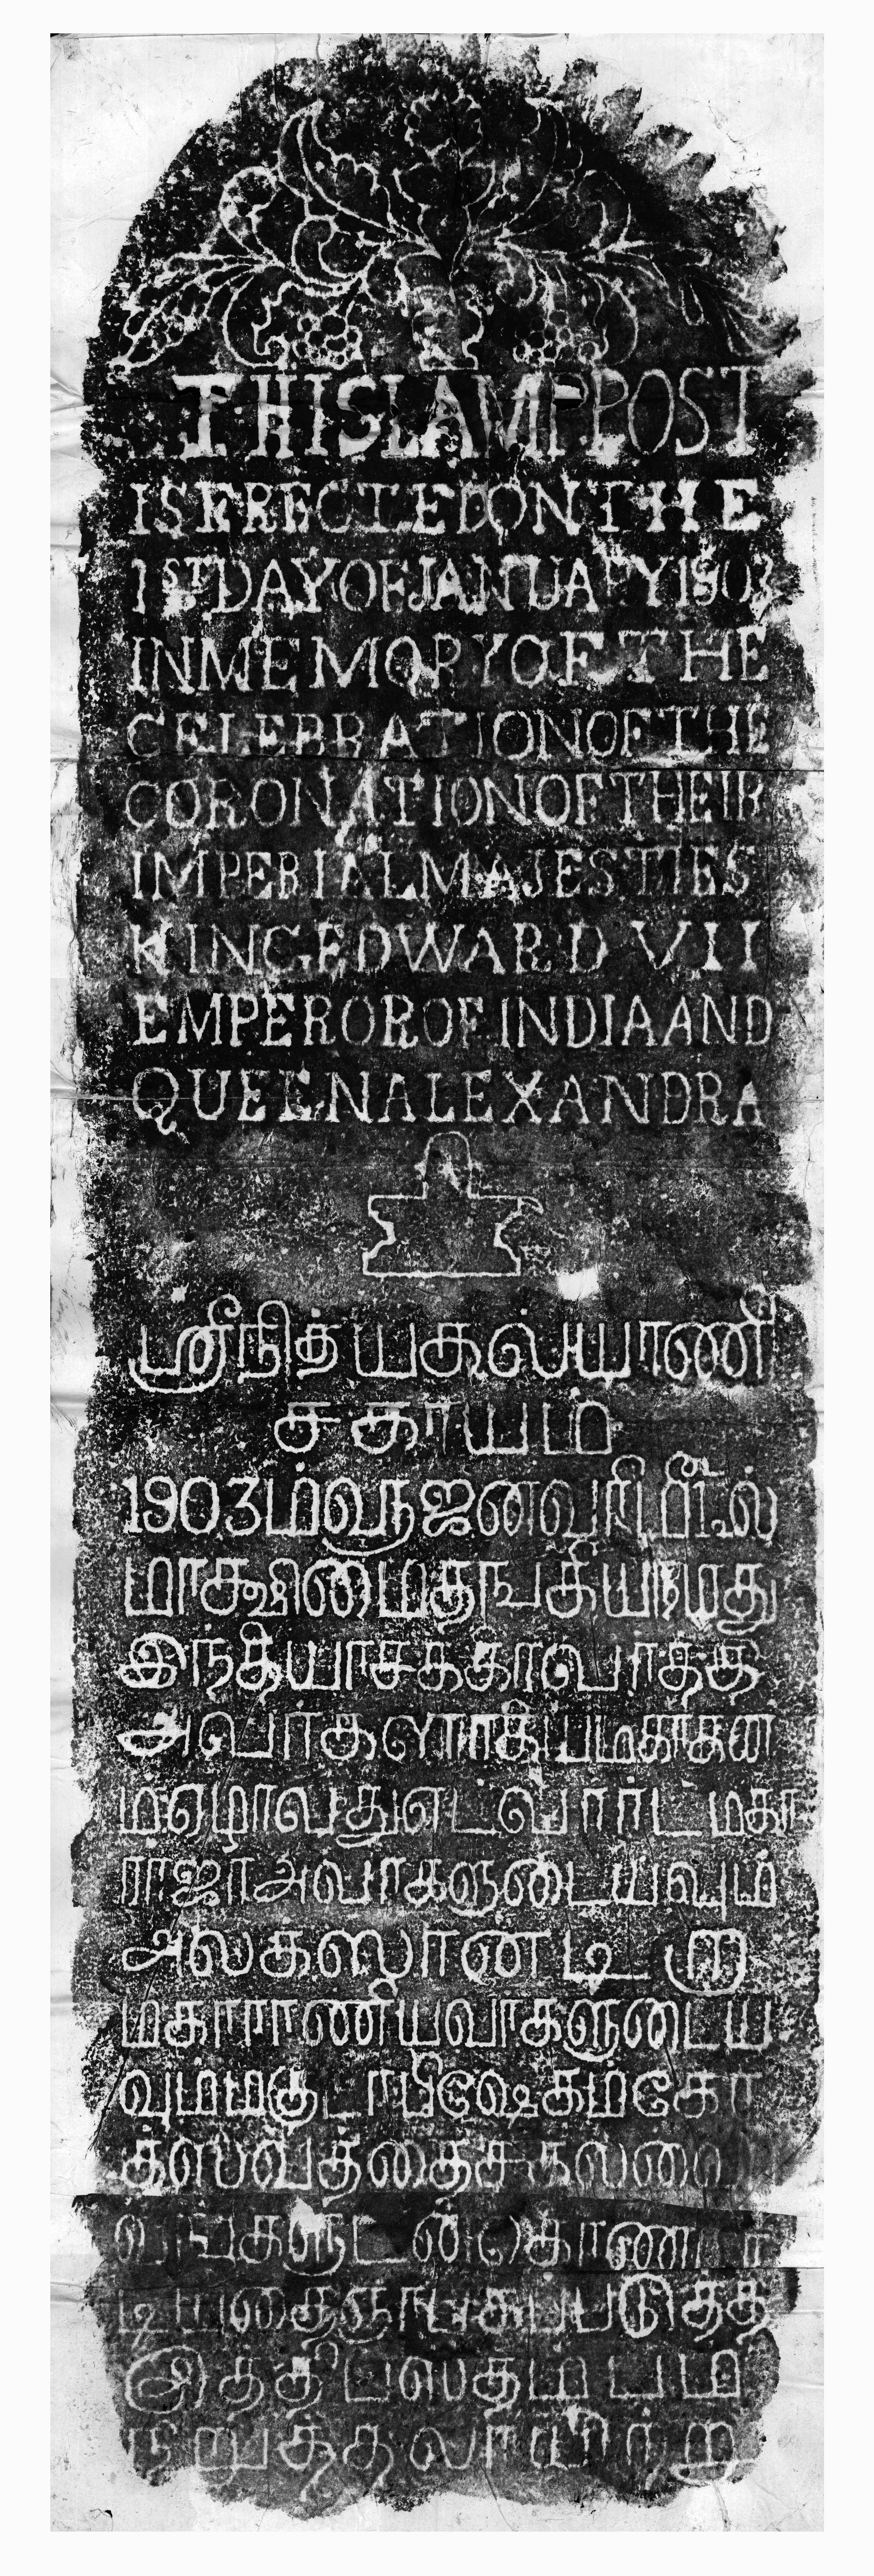 THIS LAMP POST
IS ERECTED ON THE
1ST DAY OF JANUARY 1903
IN MEMORY OF THE
CELEBRATION OF THE
CORONATION OF THEIR
IMPERIAL MAJESTIES
KING EDWARD VII
EMPEROR OF INDIA AND
QUEEN ALEXANDRA
ஸ்ரீநித்யகல்யாணி
சகாயம்
1903ம்௵ஜனவரி௴1ல்
மாக்ஷிமைதங்கியநமது
இந்தியாசக்காவாத்தி
அவர்களாகியமகாகன
மஏழாவதுஎட்வார்ட்மகா
ராஜாஅவாகளுடையவும்
அலக்ஸாண்டிறா
மகாராணியவாகளுடைய
வும்மகுடாபிஷேகம்கோ
த்ஸவத்தைசகல
ங்களுடன்கொணடா
டியதைஞாபகப்படுத்த
இத்தீபஸ்தம்பம்
நிறுத்தலாயிற்று